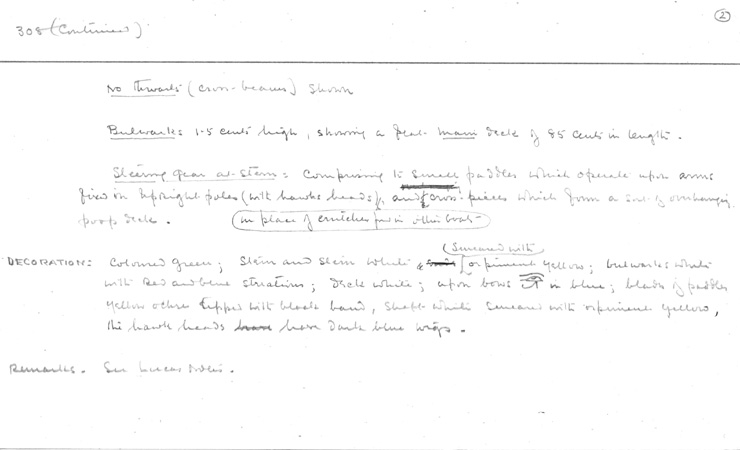 ②
308 (Continued)
No thwarts (cross-beams) shown
Bulwarks 1.5 cents high, showing a flat main deck of 85 cents in length.
Steering gear at stern: Comprising 15 small paddles which operate upon arms
fixed on upright poles (with hawks heads), and cross-pieces which form a sort of overhanging
poop deck. (in place of crutches found in other boats)
(Smeared with
DECORATION: Coloured green; Stem and Stern white & orpiment yellow; bulwarks white
with Red and blue striations; Deck white; upon bows in blue; blades of paddles
yellow ochre tipped with black band, Shafts white Smeared with orpiment yellow,
the hawk heads have Dark blue wigs.
Remarks. See Lucas Notes.